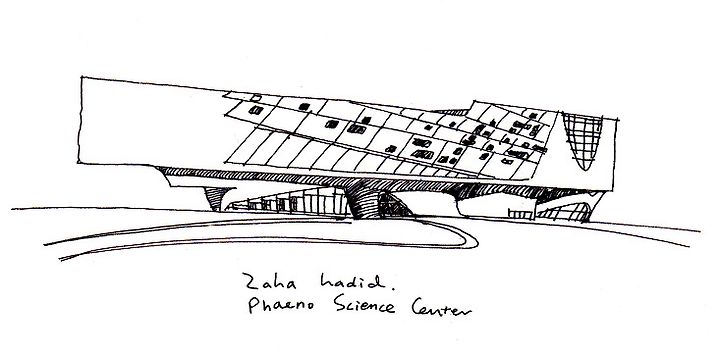 Zaha hadid.
Phaeno Science Center